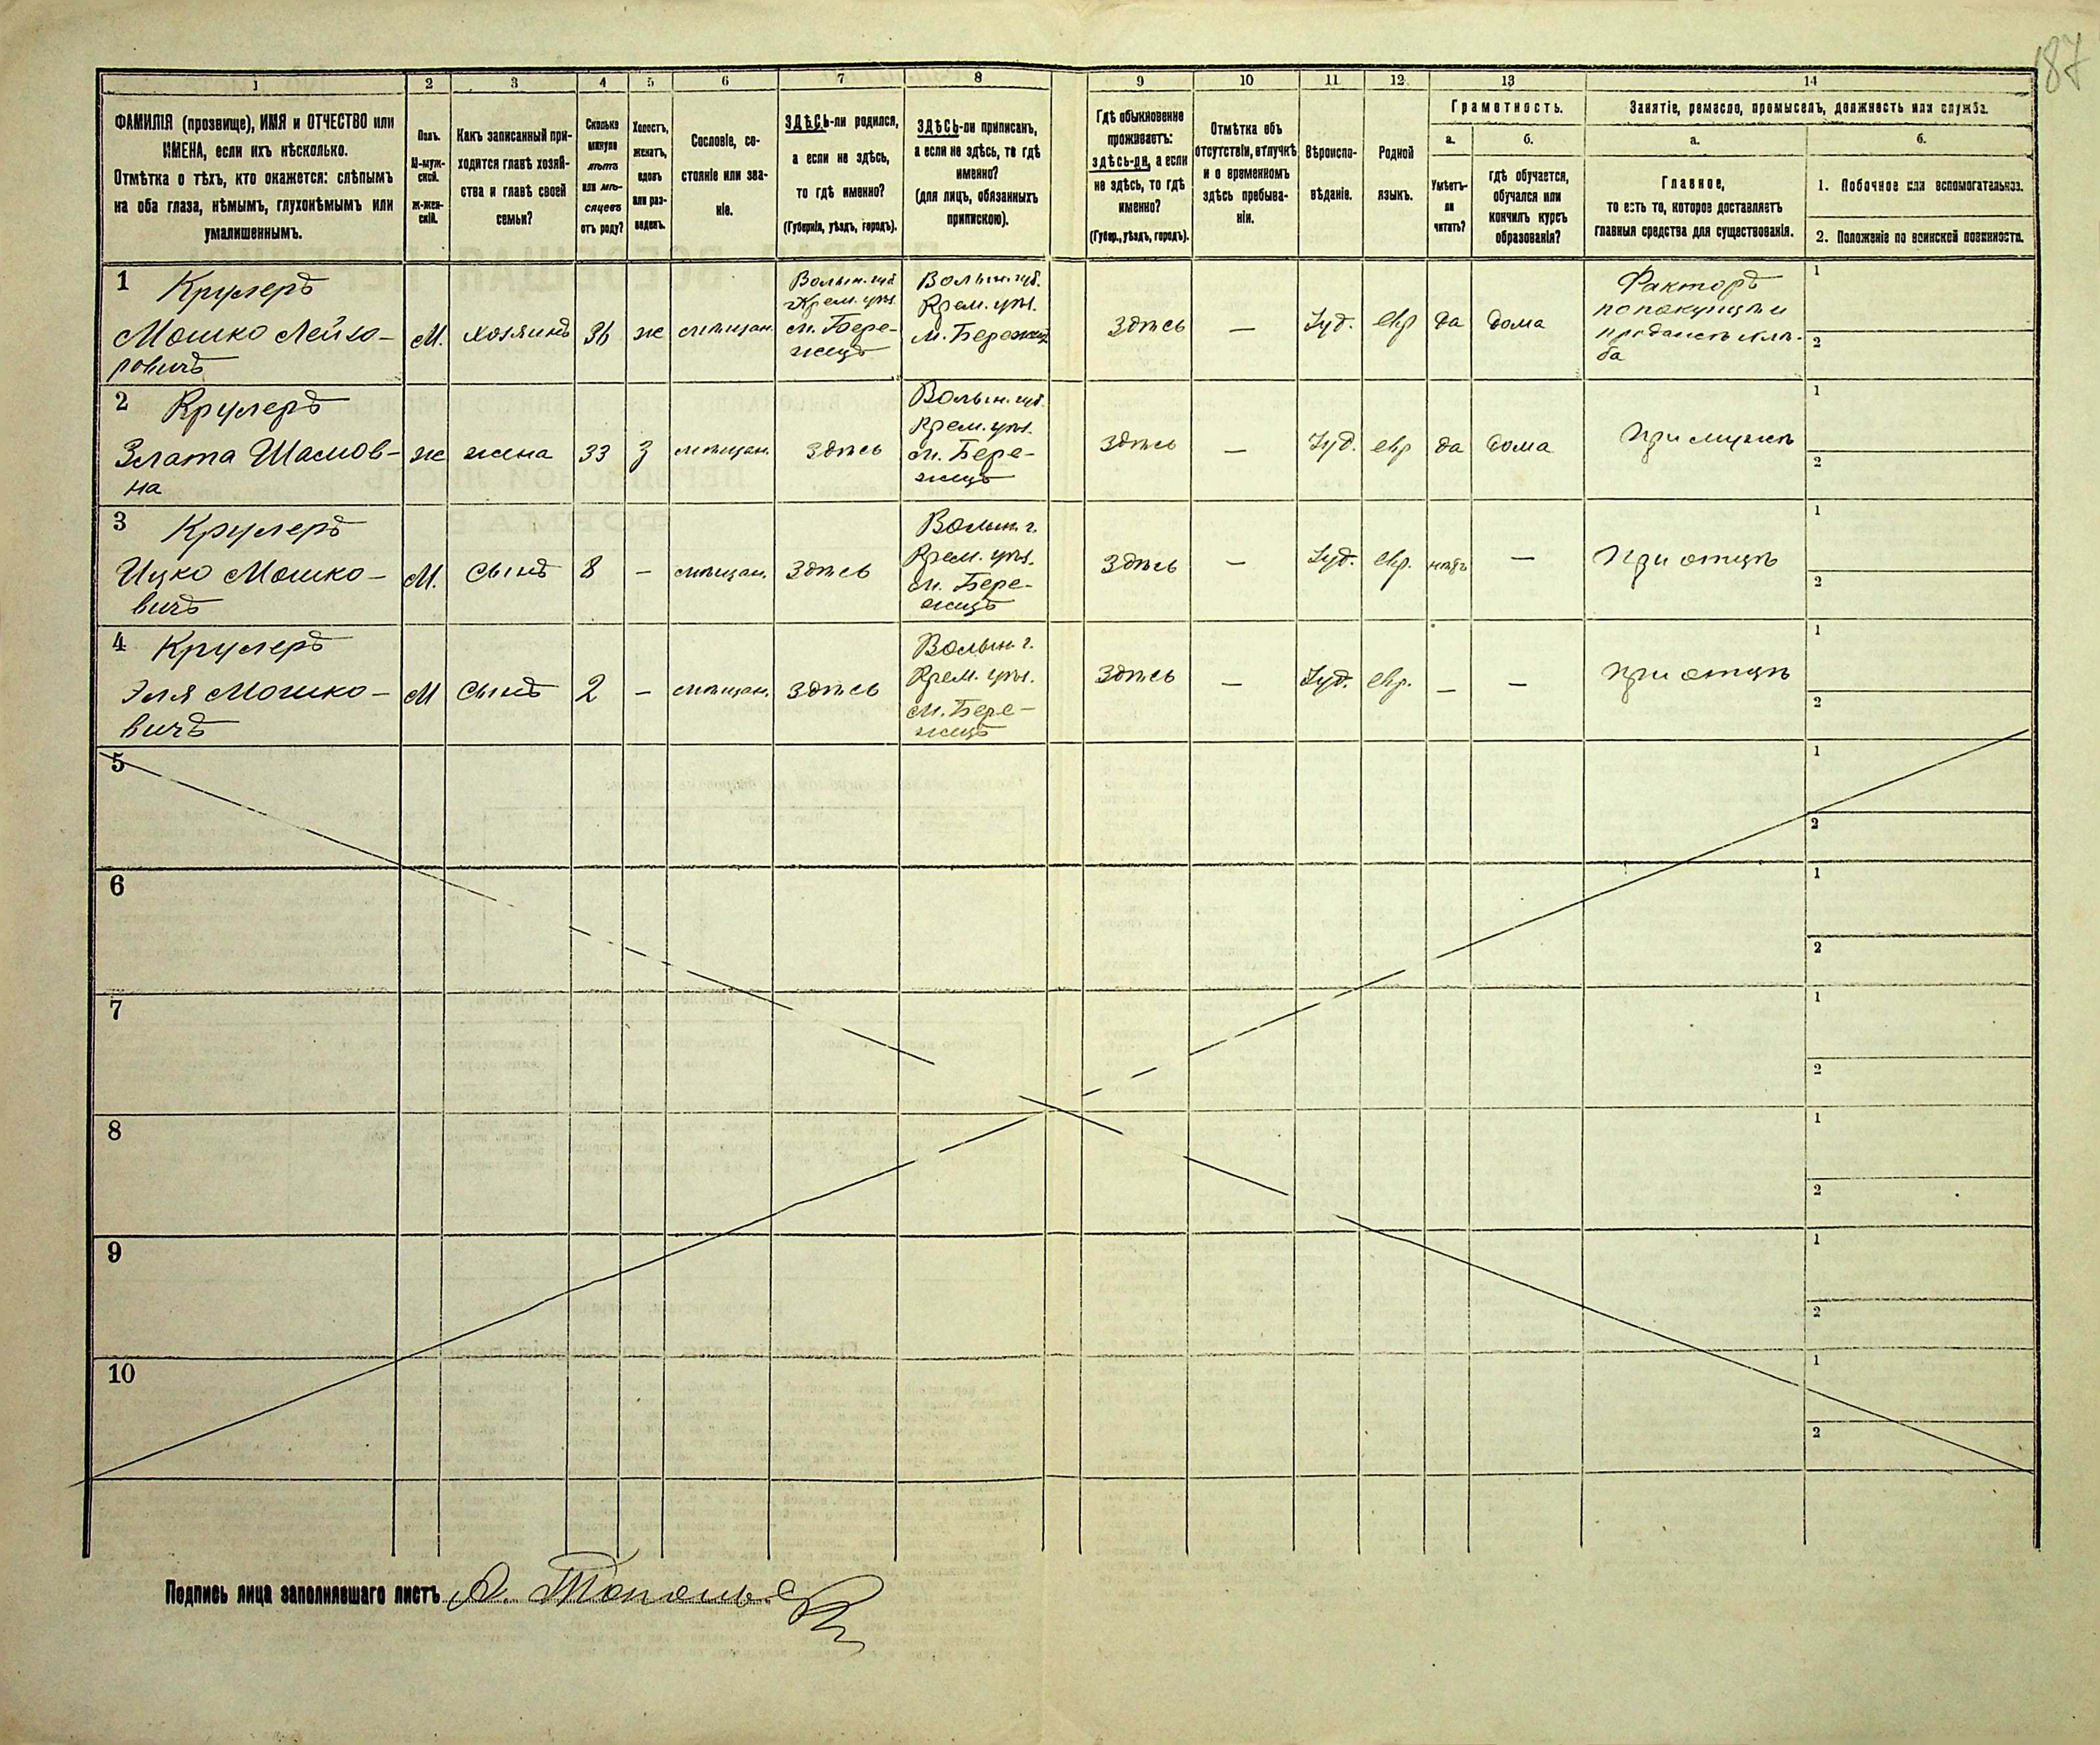 187
1 2 3 4 5 6 7 8 9 10 11 12 13 14
ФАМИЛІЯ (прозвище), ИМЯ и ОТЧЕСТВО или
ИМЕНА, если ихъ нѣсколько.
Отмѣтка о тѣхъ, кто окажется: слѣпымъ
на оба глаза, нѣмымъ, глухонѣмымъ или
умалишеннымъ.
Полъ.
М-муж-
ской.
ж-жен-
скій.
Какъ записанный при-
ходится главѣ хозяй-
ства и главѣ своей
семьи?
Сколько
минуло
лѣтъ
или мѣ-
сяцевъ
отъ роду?
Холостъ,
женатъ,
вдовъ
или раз-
веденъ.
Сословіе, со-
стояніе или зва-
ніе.
ЗДѢСЬ-ли родился,
а если не здѣсь,
то гдѣ именно?
(Губернія, уѣздъ, городъ).
ЗДѢСЬ-ли приписанъ,
а если не здѣсь, то гдѣ
именно?
(для лицъ, обязанныхъ
припискою).
Гдѣ обыкновенно
проживаетъ:
здѣсь-ли, а если
не здѣсь, то гдѣ
именно?
(Губер., уѣздъ, городъ).
Отмѣтка объ
отсутствіи, отлучкѣ
и о временномъ
здѣсь пребыва-
ніи.
Вѣроиспо-
вѣданіе.
Родной
языкъ.
Грамотность.
а.
Умѣетъ-
ли
читать?
б.
гдѣ обучается,
обучался или
кончилъ курсъ
образованія?
Занятіе, ремесло, промыселъ, должность или служба.
а.
Главное,
то есть то, которое доставляетъ
главныя средства для существованія.
б.
1. Побочное или вспомогательное.
2. Положеніе по воинской повинности.
1 Крулеръ
Мошко Лейзо-
ровичъ
М.
хозяинъ
36
ж
мѣщан.
Волын. губ.
Крем. уѣз.
м. Бере-
жцъ
Волын. губ.
Крем. уѣз.
м. Бережцъ
Здѣсь
—
Іуд.
евр
да
дома
Факторъ
по покупкѣ и
продажѣ хлѣ-
ба
1
2
2 Крулеръ
Злата Шамов-
на
ж
жена
33
з
мѣщан.
Здѣсь
Волын. губ.
Крем. уѣз.
м. Бере-
жцъ
Здѣсь
—
Іуд.
евр
да
дома
При мужѣ
1
2
3 Крулеръ
Ицко Мошко-
вичъ
М.
сынъ
8
—
мѣщан.
Здѣсь
Волын. г.
Крем. уѣз.
м. Бере-
жцъ
Здѣсь
—
Іуд.
евр.
нѣтъ
—
При отцѣ
1
2
4 Крулеръ
Эля Мошко-
вичъ
М
сынъ
2
—
мѣщан.
Здѣсь
Волын. г.
Крем. уѣз.
м. Бере-
жцъ
Здѣсь
—
Іуд.
евр.
—
—
При отцѣ
1
2
5
1
2
6
1
2
7
1
2
8
1
2
9
1
2
10
1
2
Подпись лица заполнявшаго листъ